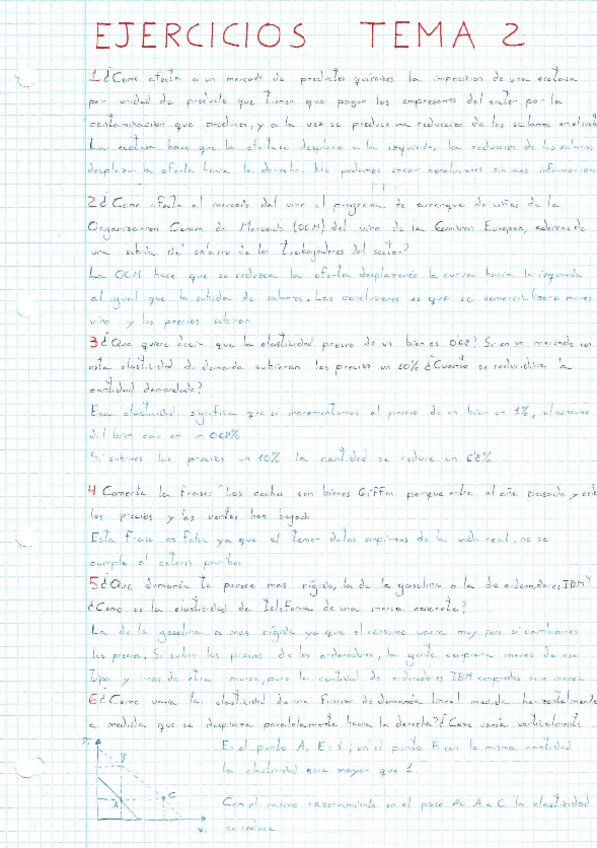 EJERCICIOS TEMA 2
1 ¿Como afecta a un mercado de productos quimicos la imposicion de una ecotasa
por unidad de producto que tienen que pagar los empresarios del sector por la
contaminación que producen, y a la vez se produce una reduccion de los salarios en el
La ecotasa hace que la oferta se desplace a la izquierda, la reduccion de los salarios
desplaza la oferta hacia la derecha. No podemos sacar conclusiones sin mas informacion
2 ¿Como afecta al mercado del vino el programa de arranque de viñas de la
Organizacion Comun de Mercado (OCM) del vino de la Comision Europea, ademas de
una subida del salario de los trabajadores del sector?
La OCM hace que se reduzca la oferta desplazando la curva hacia la izquierda
al igual que la subida de salarios. Las conclusiones es que se comercializara menos
vino y los precios subiran
3 ¿Que quiere decir que la elasticidad precio de un bien es 0'68? Si en un mercado con
esta elasticidad de demanda subieran los precios un 10% ¿Cuanto se reduciria la
cantidad demandada?
Esa elasticidad significa que si incrementamos el precio de un bien un 1%, el consumo
del bien cae en un 0'68%
Si subimos los precios un 10% la cantidad se reduce un 6'8%
4 Comenta la frase: "Los coches son bienes Giffen porque entre el año pasado y este
los precios y las ventas han bajado
Esta frase es falsa ya que al tomar datos empiricos de la vida real, no se
cumple el ceteris paribus
5 ¿Que demanda te parece mas rigida, la de la gasolina o la de ordenadores IBM?
¿Como es la elasticidad de telefonia de una marca concreta?
La de la gasolina es mas rigida ya que el consumo varia muy poco si cambiamos
los precios. Si suben los precios de los ordenadores, la gente comprara menos de ese
tipo y mas de otra marca, pero la cantidad de ordenadores IBM comprados sera menor
6 ¿Como varia la elasticidad de una funcion de demanda lineal medida horizontalmente
a medida que se desplaza paralelamente hacia la derecha? ¿Como varia verticalmente
En el punto A, E=1, en el punto B con la misma cantidad
la elasticidad sera mayor que 1.
Con el mismo razonamiento en el paso de A a C la elasticidad
se reduce
P
B
A
C
X